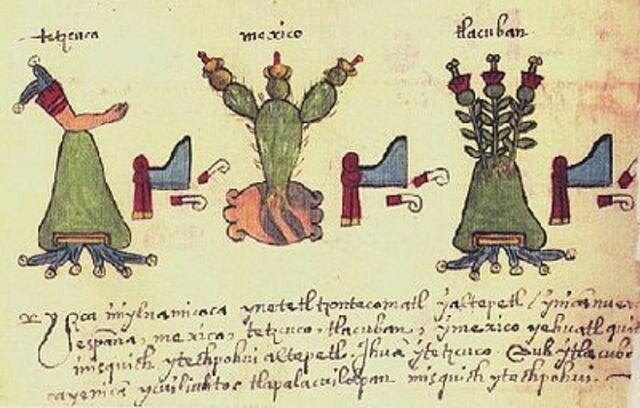 tetzcuca mexico tlacuban
yzca imylnamicoca ynetetl tzontecomatl yaltepetl / ynican nuev
españa, mexico, tetzcuco, tlacuban, ymexico yehuatl qui
mixquich ytechpohui altepetl. Yhuā ytetzcuco. Auh ytlacuba
cayenicā ycuiliuhtoc tlapalacuilolpan mixquich ytechpohui.